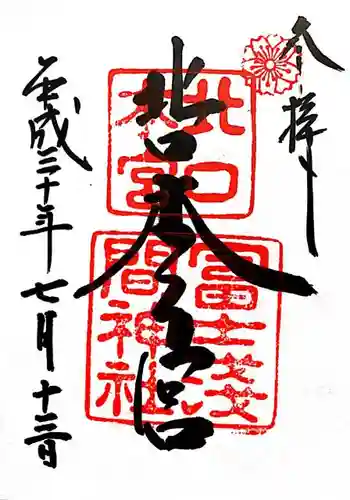 奉拝
北口本宮
北口
本宮
冨士浅
間神社
平成三十年七月十三日